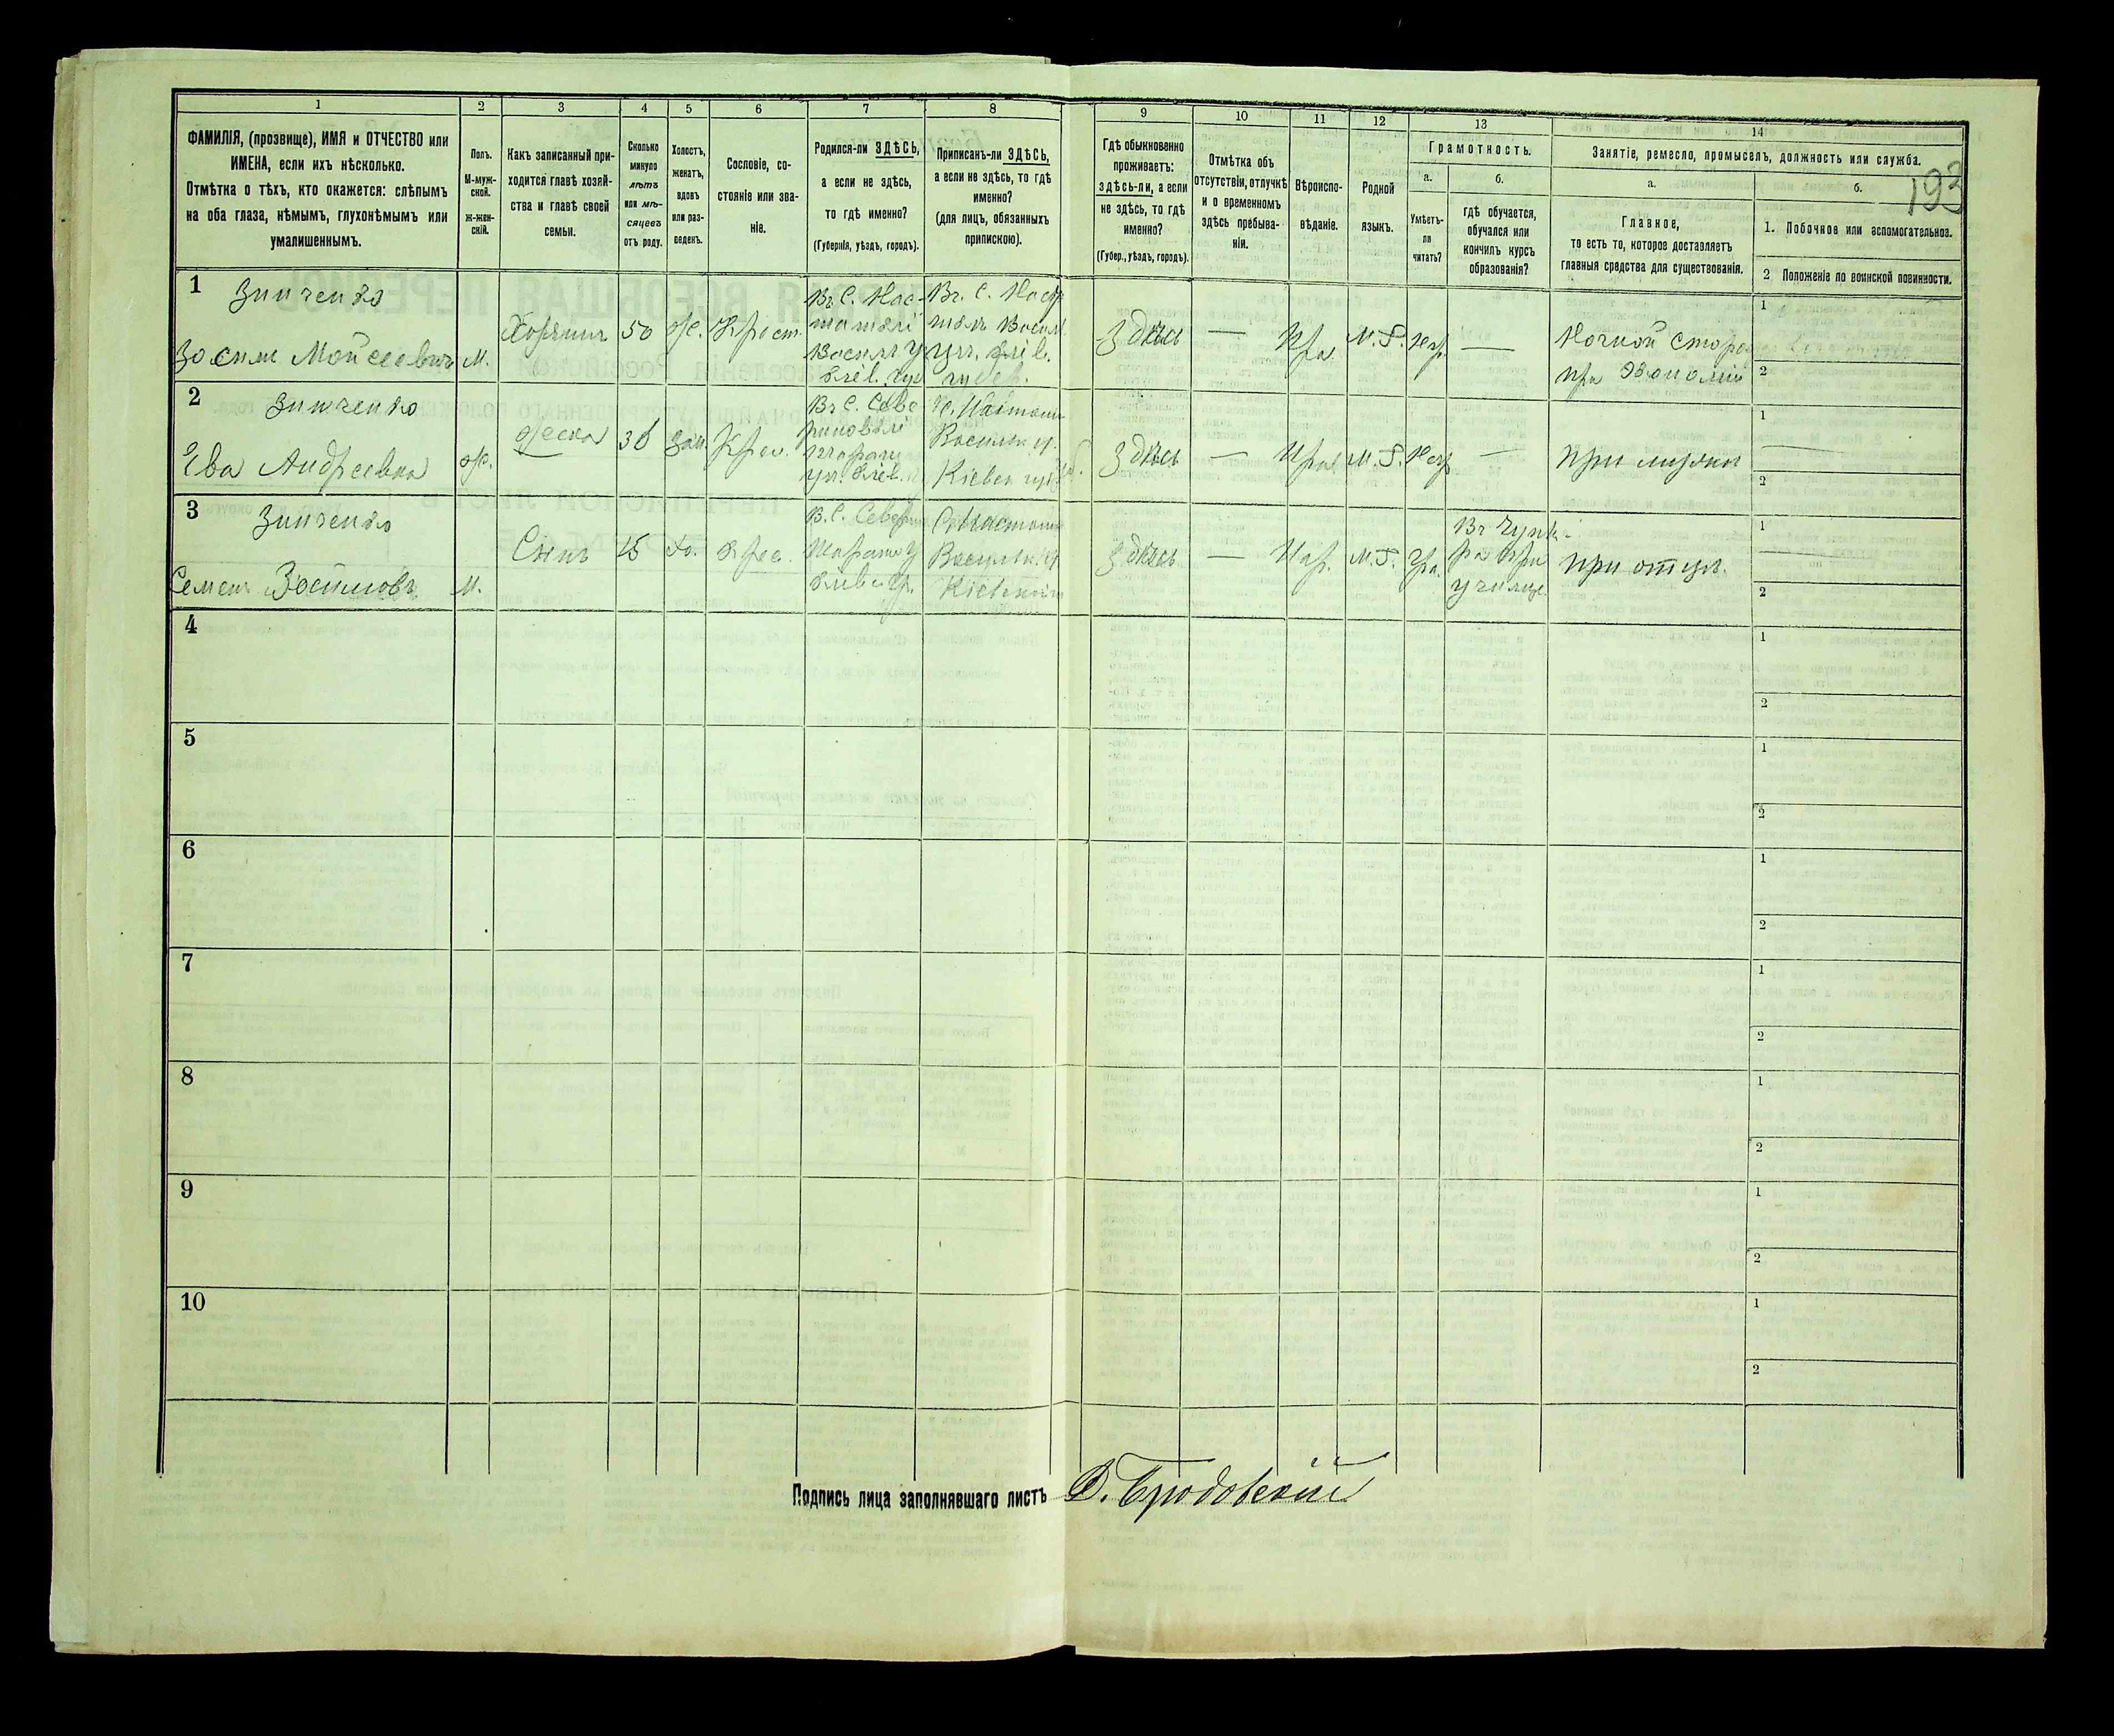 1 2 3 4 5 6 7 8 9 10 11 12 13 14
193
ФАМИЛІЯ, (прозвище), ИМЯ и ОТЧЕСТВО или
ИМЕНА, если ихъ нѣсколько.
Отмѣтка о тѣхъ, кто окажется: слѣпымъ
на оба глаза, нѣмымъ, глухонѣмымъ или
умалишеннымъ.
Полъ.
М-муж-
ской.
ж-жен-
скій.
Какъ записанный при-
ходится главѣ хозяй-
ства и главѣ своей
семьи.
Сколько
минуло
лѣтъ
или мѣ-
сяцевъ
отъ роду.
Холостъ,
женатъ,
вдовъ
или раз-
веденъ.
Сословіе, со-
стояніе или зва-
ніе.
Родился-ли ЗДѢСЬ,
а если не здѣсь,
то гдѣ именно?
(Губернія, уѣздъ, городъ).
Приписанъ-ли ЗДѢСЬ,
а если не здѣсь, то гдѣ
именно?
(для лицъ, обязанныхъ
припискою).
Гдѣ обыкновенно
проживаетъ:
здѣсь-ли, а если
не здѣсь, то гдѣ
именно?
(Губер., уѣздъ, городъ).
Отмѣтка объ
отсутствіи, отлучкѣ
и о временномъ
здѣсь пребыва-
ніи.
Вѣроиспо-
вѣданіе.
Родной
языкъ.
Грамотность.
а.
Умѣетъ-
ли
читать?
б.
гдѣ обучается,
обучался или
кончилъ курсъ
образованія?
Занятіе, ремесло, промыселъ, должность или служба.
а.
Главное,
то есть то, которое доставляетъ
главныя средства для существованія.
б.
1. Побочное или вспомогательное.
2 Положеніе по воинской повинности.
1
Зинченко
Зосим Мойсеевичъ
М.
Хозяинъ
50
Ж.
Крест.
Здѣсь
—
Пра.
М. Р.
Нег.
—
Ночной Сторо
при Экономіи
1
2
2
Зинченко
Ева Андреевна
ж.
жена
36
Зам.
Крес.
Васильк у.
Кіевск губ.
Здѣсь
—
Прав
М. Р.
Нег.
—
при мужѣ
1
2
3
Зинченко
Семен Зосимовъ
М.
Сынъ
15
Хо.
Крес.
Здѣсь
—
Пра.
М. Р.
Гра.
училищ.
при отцѣ.
1
2
4
1
2
5
1
2
6
1
2
7
1
2
8
1
2
9
1
2
10
1
2
Подпись лица заполнявшаго листъ В. Бродовскій